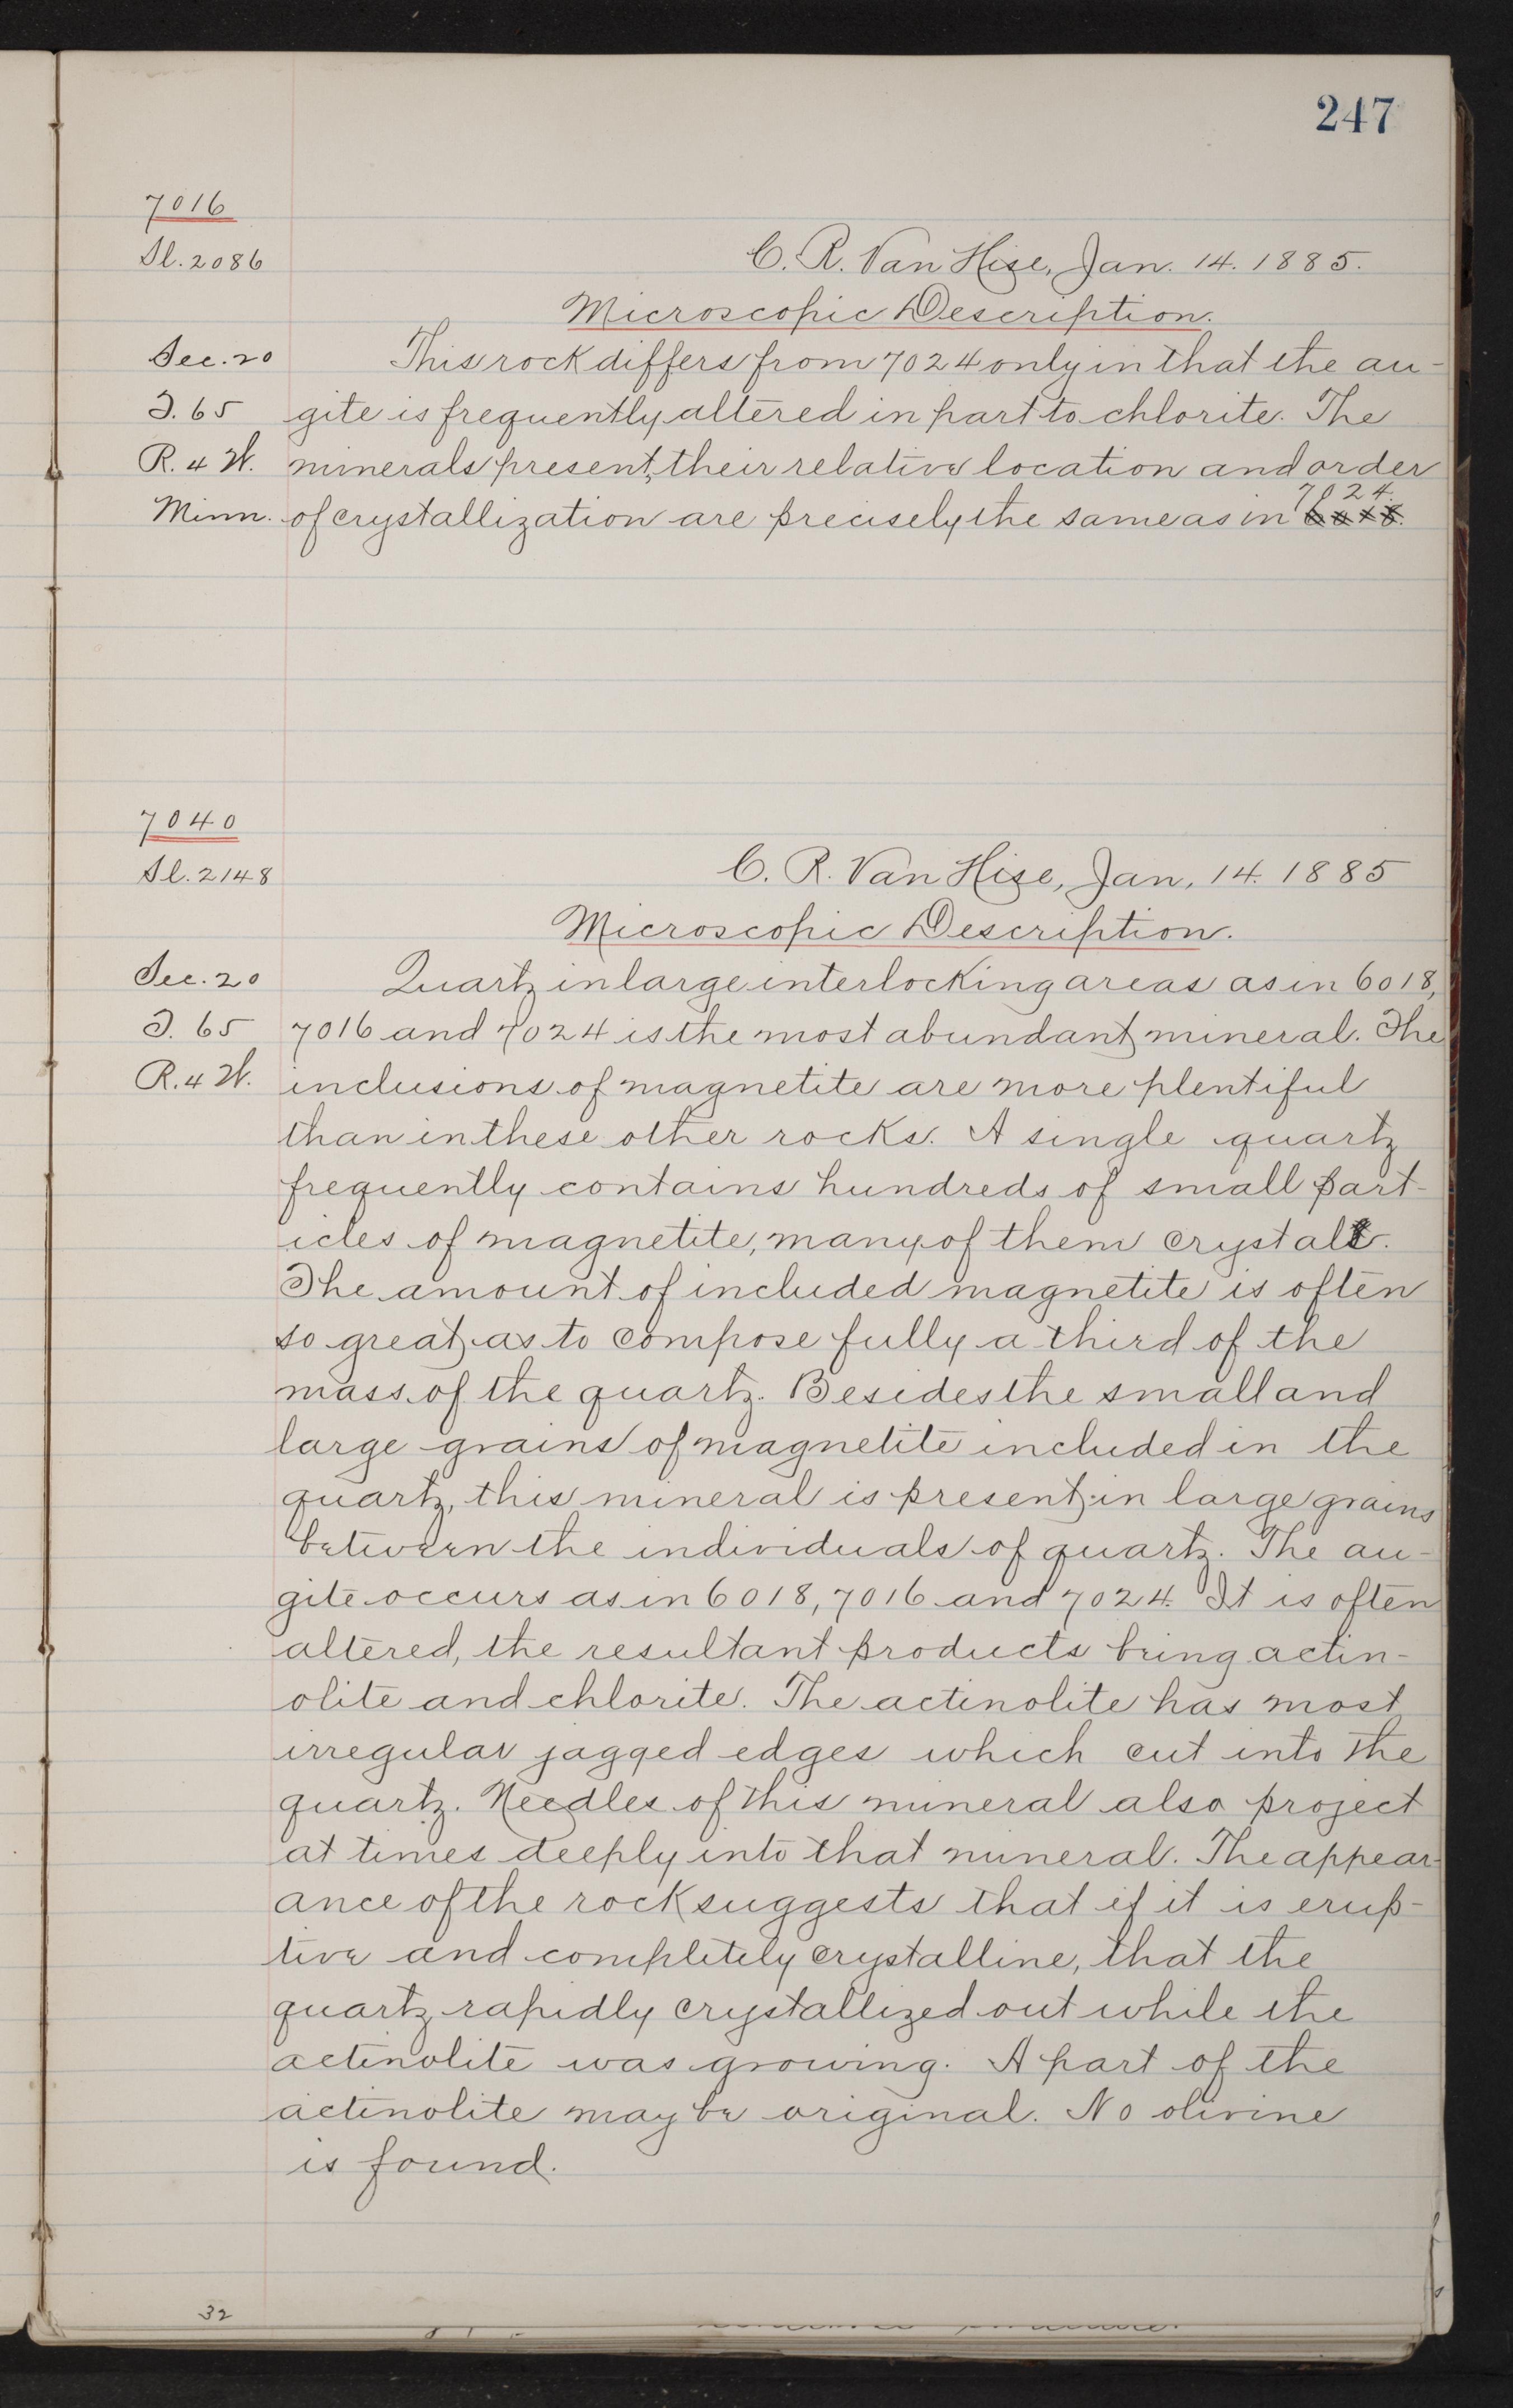 247
7016
Sl. 2086
C. R. Van Hise, Jan. 14. 1885.
Microscopic Description.
Sec. 20 This rock differs from 7024 only in that the au-
T. 65 gite is frequently altered in part to chlorite. The
R. 4 W. minerals present, their relative location and order
7024.
Minn. of crystallization are precisely the same as in 6018.
7040
Sl. 2148
C. R. Van Hise, Jan, 14. 1885
Microscopic Description.
Sec. 20 Quartz in large interlocking areas as in 6018,
T. 65 7016 and 7024 is the most abundant mineral. The
R. 4 W. inclusions of magnetite are more plentiful
than in these other rocks. A single quartz
frequently contains hundreds of small part-
icles of magnetite, many of them crystals.
The amount of included magnetite is often
so great as to compose fully a third of the
mass of the quartz. Besides the small and
large grains of magnetite included in the
quartz, this mineral is present in large grains
between the individuals of quartz. The au-
gite occurs as in 6018, 7016 and 7024. It is often
altered, the resultant products being actin-
olite and chlorite. The actinolite has most
irregular jagged edges which cut into the
quartz. Needles of this mineral also project
at times deeply into that mineral. The appear-
ance of the rock suggests that if it is erup-
tive and completely crystalline, that the
quartz rapidly crystallized out while the
actinolite was growing. A part of the
actinolite may be original. No olivine
is found.
32